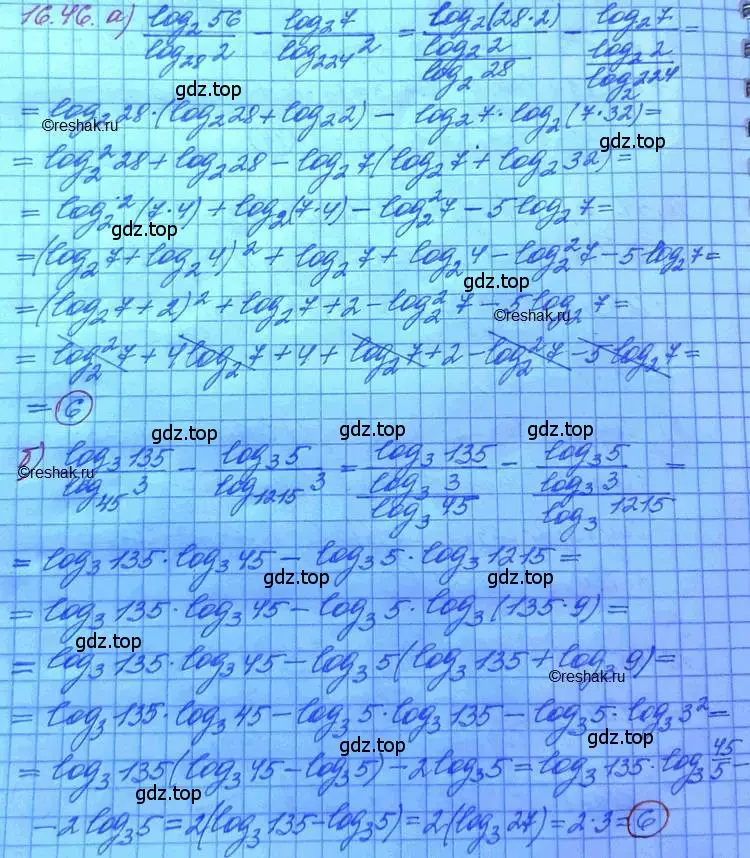 16.46. а) log₂56/log₂₈2 − log₂7/log₂₂₄2 = log₂(28·2)/(log₂2/log₂28) − log₂7/(log₂2/log₂224) =
gdz.top
= log₂28·(log₂28+log₂2) − log₂7·log₂(7·32)=
©reshak.ru
gdz.top
= log₂²28+log₂28−log₂7(log₂7+log₂32)=
= log₂²(7·4)+log₂(7·4)−log₂²7−5log₂7=
gdz.top
=(log₂7+log₂4)²+log₂7+log₂4−log₂²7−5log₂7=
gdz.top
=(log₂7+2)²+log₂7+2−log₂²7−5log₂7=
©reshak.ru
= log₂²7+4log₂7+4+log₂7+2−log₂²7−5log₂7=
= 6
gdz.top gdz.top gdz.top
б) log₃135/log₄₅3 − log₃5/log₁₂₁₅3 = log₃135/(log₃3/log₃45) − log₃5/(log₃3/log₃1215) =
©reshak.ru
= log₃135·log₃45−log₃5·log₃1215=
gdz.top gdz.top
= log₃135·log₃45−log₃5·log₃(135·9)=
gdz.top
= log₃135·log₃45−log₃5(log₃135+log₃9)=
©reshak.ru
= log₃135·log₃45−log₃5·log₃135−log₃5·log₃3²=
gdz.top gdz.top
= log₃135(log₃45−log₃5)−2log₃5=log₃135·log₃45/5−
gdz.top
−2log₃5=2(log₃135−log₃5)=2(log₃27)=2·3=6
gdz.top